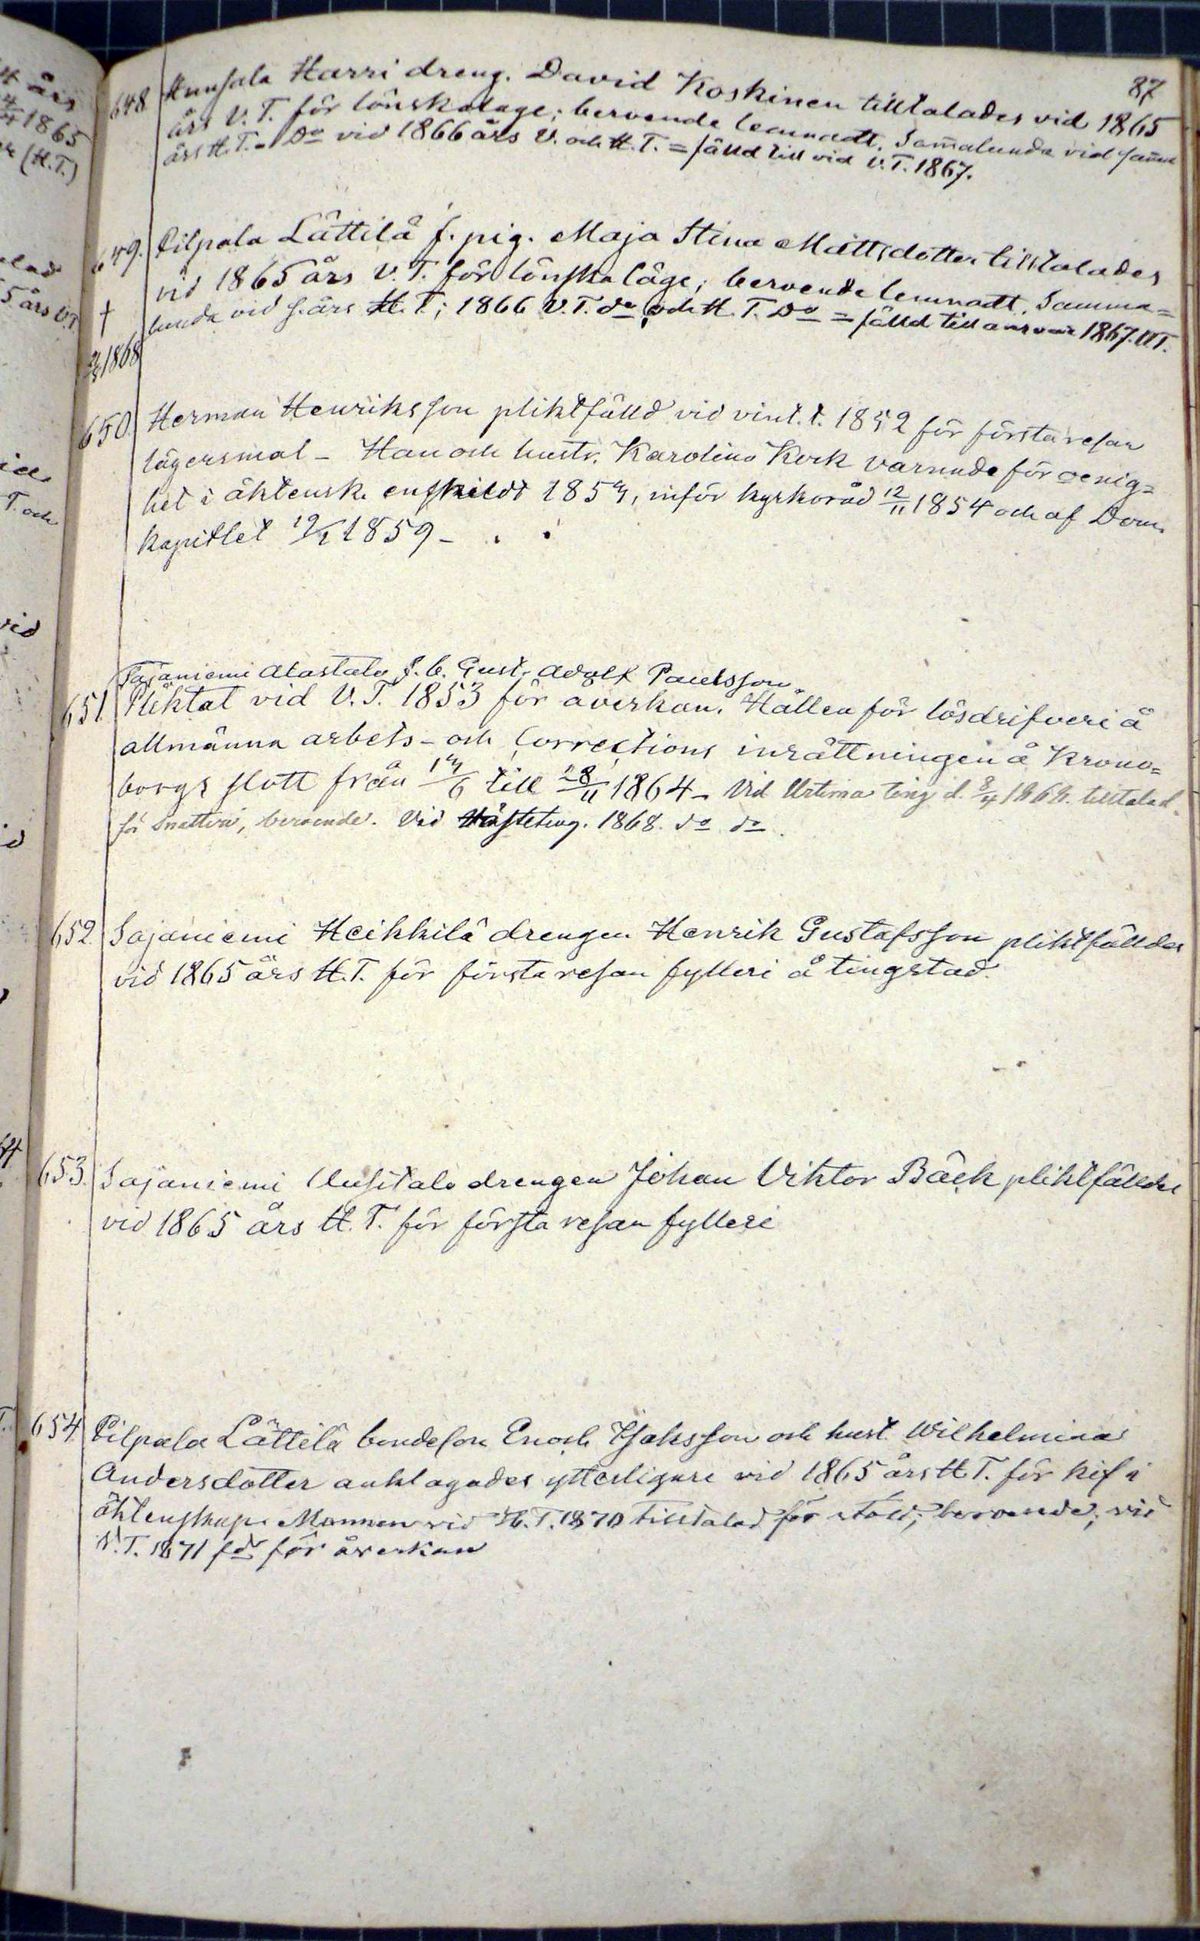 87
648. Hunsala Harri dreng. David Koskinen tilltalades vid 1865
års V. T. för lönskaläge; beroende lemnadt. Sam̄alunda vid sam̄a
års H. T. - Do vid 1866 års V. och H. T. = fälld till vid V. T. 1867.
649. Pilpala Lättilä f. pig. Maja Stina Mattsdotter tilltalades
vid 1865 års V. T. för lönskaläge; beroende lemnadt. Samma=
† lunda vid s. års H. T; 1866 V. T. do och H. T. Do = fälld till ansvar 1867. VT.
1868
650. Herman Henriksson pliktfälld vid vint. t. 1852 för första resan
lägersmål - Han och hustr. Karolina Kock varnade för oenig=
het i äktensk. enskildt 1854, inför kyrkoråd 12/11 1854 och af Dom.
kapitlet 19/1 1859 -
Sajaniemi Alastalo Gust. Adolf Paulsson
651. Pliktat vid V. T. 1853 för averkan. Hållen för lösdrifveri å
allmänna arbets- och Corrections inrättningen å Krono=
borgs slott från 14/6 till 28/11 1864 - Vid Urtima ting d. 8/4 1868. tilltalad
för snatteri, beroende. Vid Hösteting. 1868. do do.
652. Sajaniemi Heikkilä drengen Henrik Gustafsson pliktfälldes
vid 1865 års H. T. för första resan fylleri å tingstad.
653. Sajaniemi Uusitalo drengen Johan Viktor Bäck pliktfälldes
vid 1865 års H. T. för första resan fylleri
654. Pilpala Lättilä bondeson Enoch Isaksson och hust. Wilhelmina
Andersdotter anklagades ytterligare vid 1865 års H. T. för kif i
äktenskap. Mannen vid H. T. 1870 tilltalad för stöld; beroende; vid
V. T. 1871 för åverkan